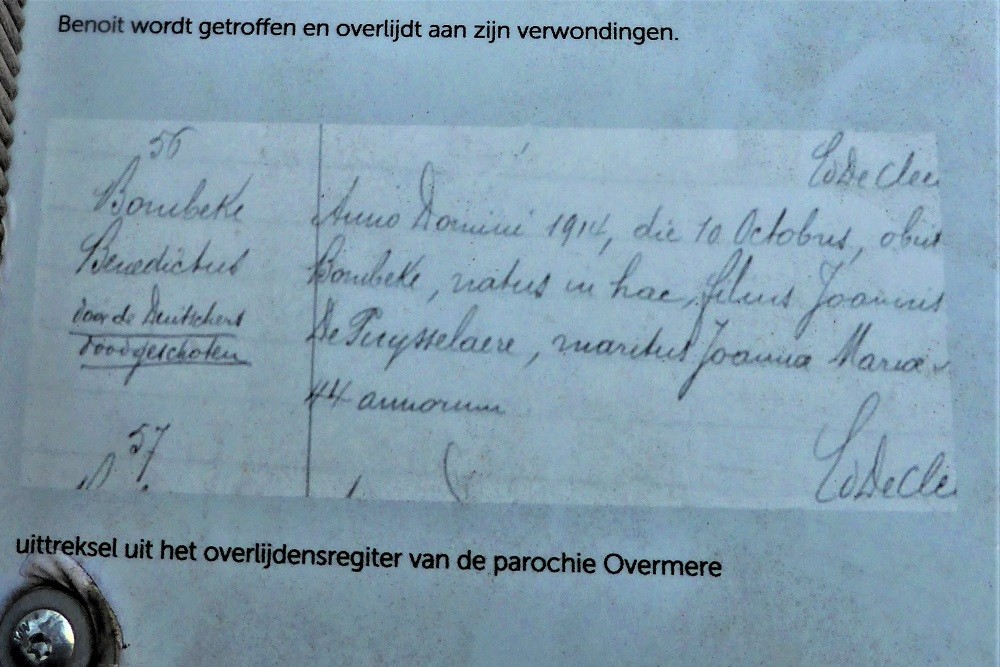 Benoit wordt getroffen en overlijdt aan zijn verwondingen.
56
Bombeke
Benedictus
door de Deutschers
doodgeschoten
Anno Domini 1914, die 10 Octobris, obiit
Bombeke, natus in hac, filius Joannis
De Puysselaere, maritus Joanna Maria
44 annorum
57
uittreksel uit het overlijdensregiter van de parochie Overmere